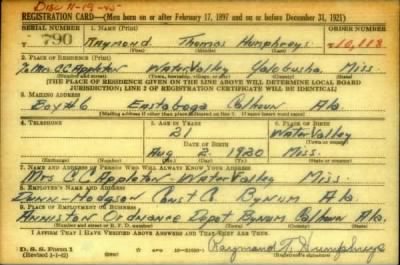 Disc 11-19-45
REGISTRATION CARD—(Men born on or after February 17, 1897 and on or before December 31, 1921)
SERIAL NUMBER 1. NAME (Print) ORDER NUMBER
T 790 Raymond Thomas Humphreys 10,118
(First) (Middle) (Last)
2. PLACE OF RESIDENCE (Print)
℅ Mrs C.C. Appleton Water Valley Yalobusha Miss.
(Number and street) (Town, township, village, or city) (County) (State)
[THE PLACE OF RESIDENCE GIVEN ON THE LINE ABOVE WILL DETERMINE LOCAL BOARD
JURISDICTION; LINE 2 OF REGISTRATION CERTIFICATE WILL BE IDENTICAL]
3. MAILING ADDRESS
Box #6 Eastaboga Calhoun Ala.
[Mailing address if other than place indicated on line 2. If same insert word same]
4. TELEPHONE 5. AGE IN YEARS 6. PLACE OF BIRTH
21 Water Valley
DATE OF BIRTH (Town or county)
Aug 2 1920 Miss.
(Exchange) (Number) (Mo.) (Day) (Yr.) (State or country)
7. NAME AND ADDRESS OF PERSON WHO WILL ALWAYS KNOW YOUR ADDRESS
Mrs C.C. Appleton - Water Valley Miss.
8. EMPLOYER'S NAME AND ADDRESS
Dunn-Hodgson Const Co Bynum Ala.
9. PLACE OF EMPLOYMENT OR BUSINESS
Anniston Ordnance Depot Bynum Calhoun Ala.
(Number and street or R. F. D. number) (Town) (County) (State)
I AFFIRM THAT I HAVE VERIFIED ABOVE ANSWERS AND THAT THEY ARE TRUE.
D. S. S. Form 1
(Revised 1-1-42) (over) Raymond T. Humphreys